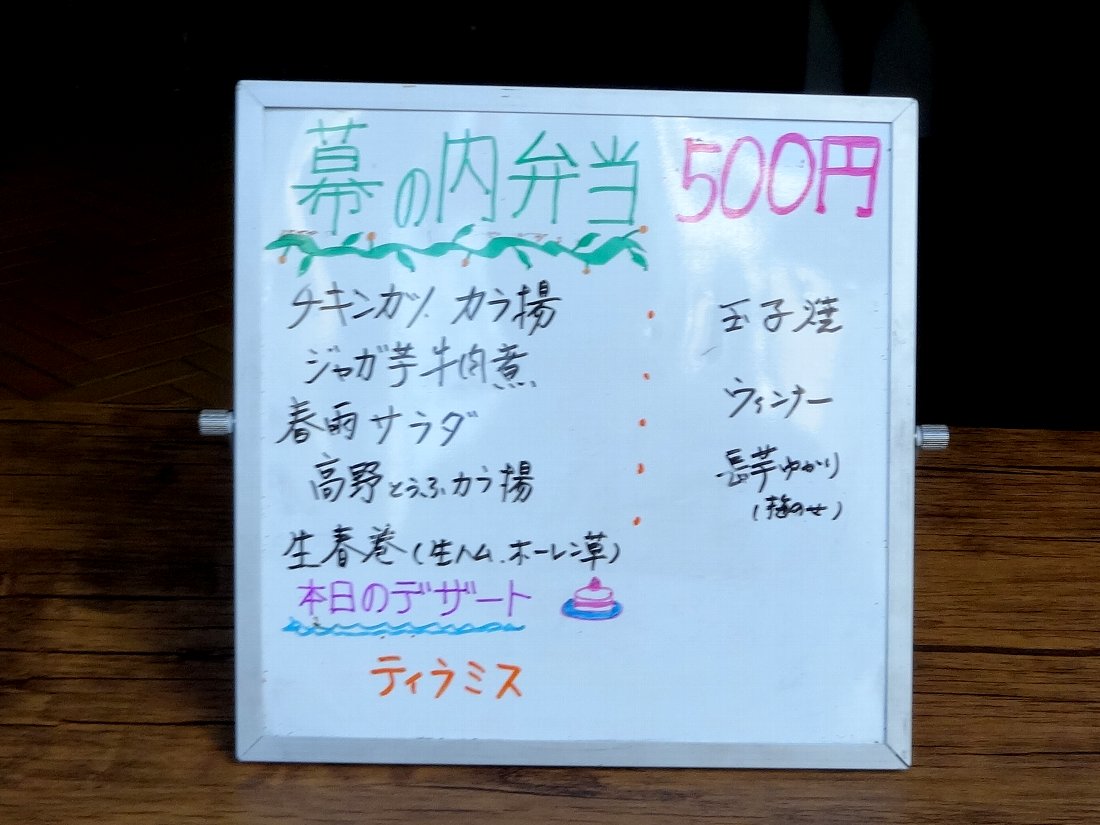 幕の内弁当 500円
チキンカツ カラ揚
ジャガ芋牛肉煮
春雨サラダ
高野とうふカラ揚
生春巻(生ハム、ホーレン草)
玉子焼
ウィンナー
長芋ゆかり
(梅のせ)
本日のデザート
ティラミス